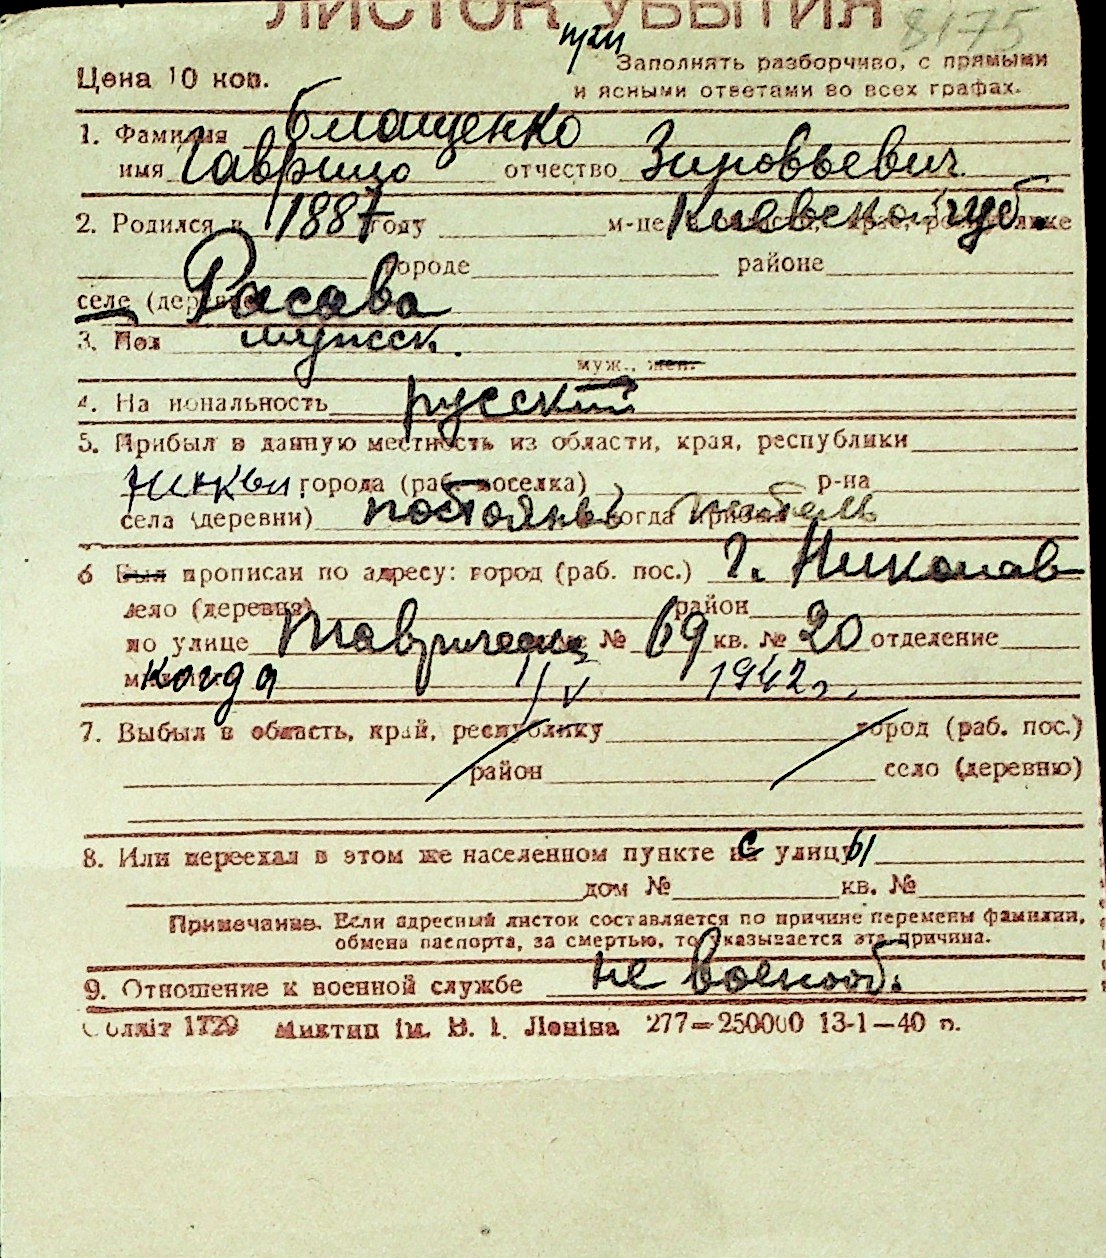 ЛИСТОК УБЫТИЯ
8175
при
Цена 10 коп.
Заполнять разборчиво, с прямыми
и ясными ответами во всех графах.
1. Фамилия Блащенко
имя Гаврило отчество Зиновьевич
2. Родился в 1887 году м-це Киевской губ.
городе районе
селе (деревне) Расава
3. Пол мужск.
муж., жен.
4. Национальность русский
5. Прибыл в данную местность из области, края, республики
города (раб. поселка) р-на
села (деревни) постояный когда прибыл житель
6 Был прописан по адресу: город (раб. пос.) г. Николаев
село (деревня) район
по улице Таврическ № 69 кв. № 20 отделение
когда 1/V 1942 г.
7. Выбыл в область, край, республику город (раб. пос.)
район село (деревню)
8. Или переехал в этом же населенном пункте с улицы
дом № кв. №
Примечание. Если адресный листок составляется по причине перемены фамилии,
обмена паспорта, за смертью, то указывается эта причина.
9. Отношение к военной службе не военооб.
Облліт 1729 Миктип ім. В. І. Леніна 277—250000 13-1—40 р.